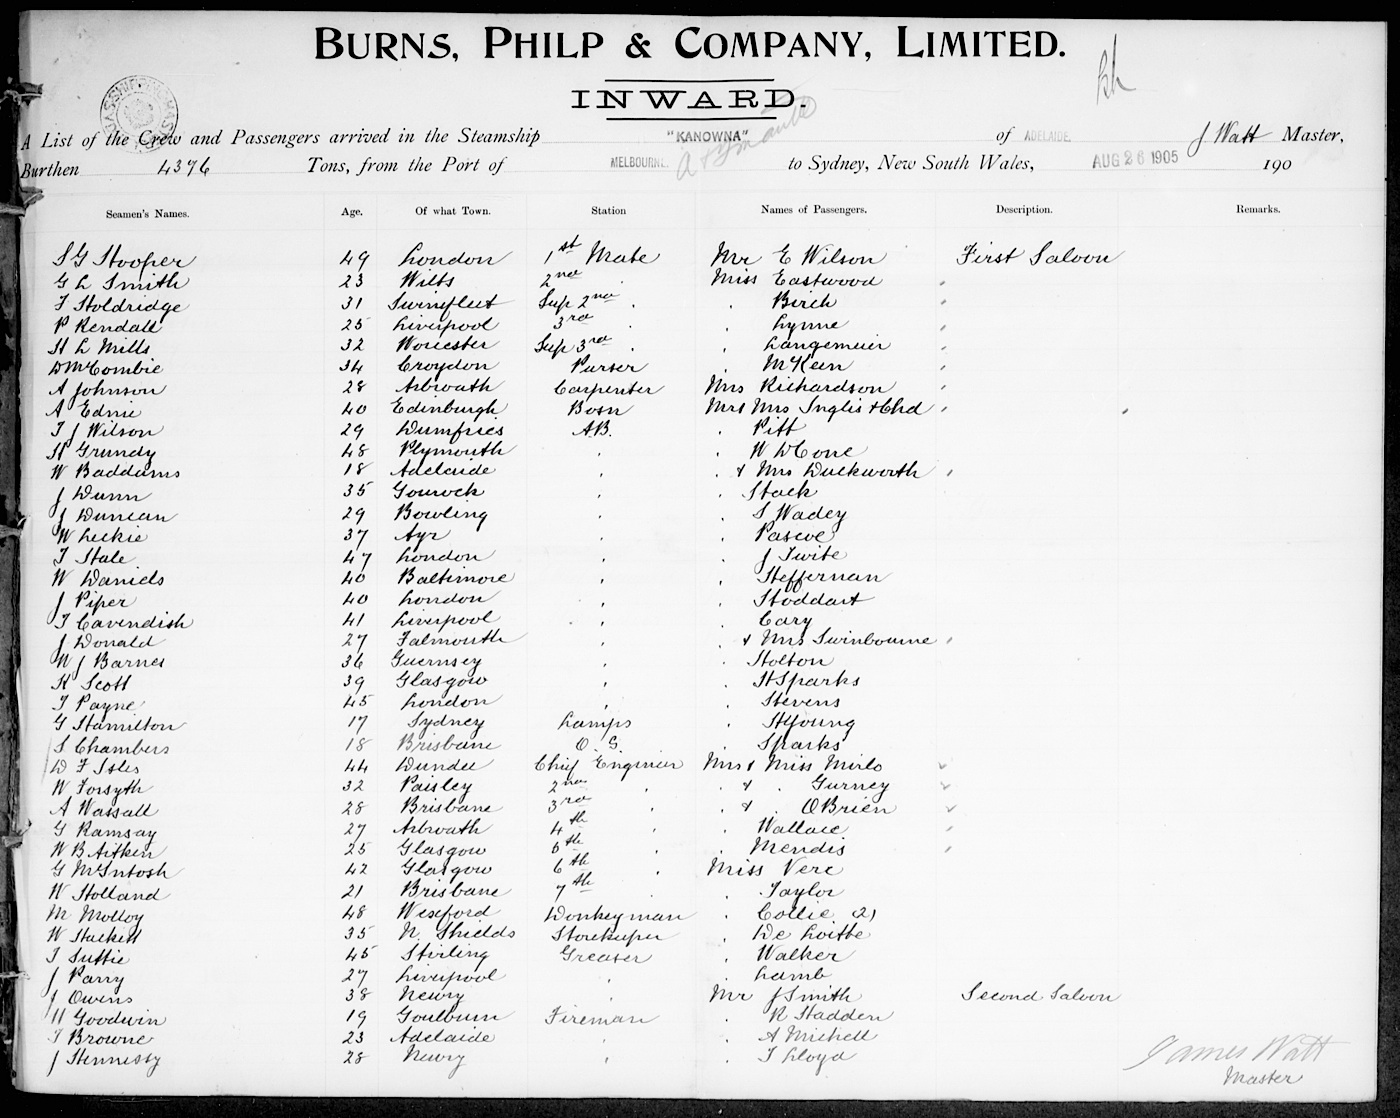 BURNS, PHILP & COMPANY, LIMITED.
INWARD.
A List of the Crew and Passengers arrived in the Steamship "KANOWNA" of ADELAIDE, J Watt Master,
Burthen 4376 Tons, from the Port of MELBOURNE. to Sydney, New South Wales, AUG 26 1905 190
Seamen's Names. Age. Of what Town. Station Names of Passengers. Description. Remarks.
S G Hooper 49 London 1st Mate Mr E Wilson First Saloon
G L Smith 23 Wilts 2nd Miss Eastwood
T Holdridge 31 Swinefleet Sup 2nd Birch
P Kendall 25 Liverpool 3rd Lynne
H L Mills 32 Worcester Sup 3rd Langemeier
D McCombie 34 Croydon Purser McKeen
A Johnson 28 Arbroath Carpenter Mrs Richardson
A Edmie 40 Edinburgh Bosn Mr & Mrs Inglis & Chd
T J Wilson 29 Dumfries A.B. Pitt
H Grundy 48 Plymouth W D Cone
W Baddams 18 Adelaide & Mrs Duckworth
J Dunn 35 Gourock Stack
J Duncan 29 Bowling S Wadey
W Leckie 37 Ayr Pascoe
T Hale 47 London J Twite
W Daniels 40 Baltimore Heffernan
J Piper 40 London Stoddart
T Cavendish 41 Liverpool Cary
J Donald 27 Falmouth & Mrs Swinbourne
W J Barnes 36 Guernsey Holton
K Scott 39 Glasgow H Sparks
T Payne 45 London Stevens
G Hamilton 17 Sydney Lamps H Young
S Chambers 18 Brisbane O. S. Sparks
D F Isles 44 Dundee Chief Engineer Mrs & Miss Mirlo
W Forsyth 32 Paisley 2nd & Gurney
A Wassall 28 Brisbane 3rd & OBrien
G Ramsay 27 Arbroath 4th Wallace
W B Aitken 25 Glasgow 5th Mendis
G McIntosh 42 Glasgow 6th Miss Vere
W Holland 21 Brisbane 7th Taylor
M Molloy 48 Wexford Donkeyman Collie (2)
W Hackett 35 N. Shields Storekeeper De Loitte
T Suttie 45 Stirling Greaser Walker
J Parry 27 Liverpool Lamb
J Owens 38 Newry Mr J Smith Second Saloon
H Goodwin 19 Goulburn Fireman R Hadden
T Browne 23 Adelaide A Michell
J Hennessy 28 Newry T Lloyd
James Watt
Master